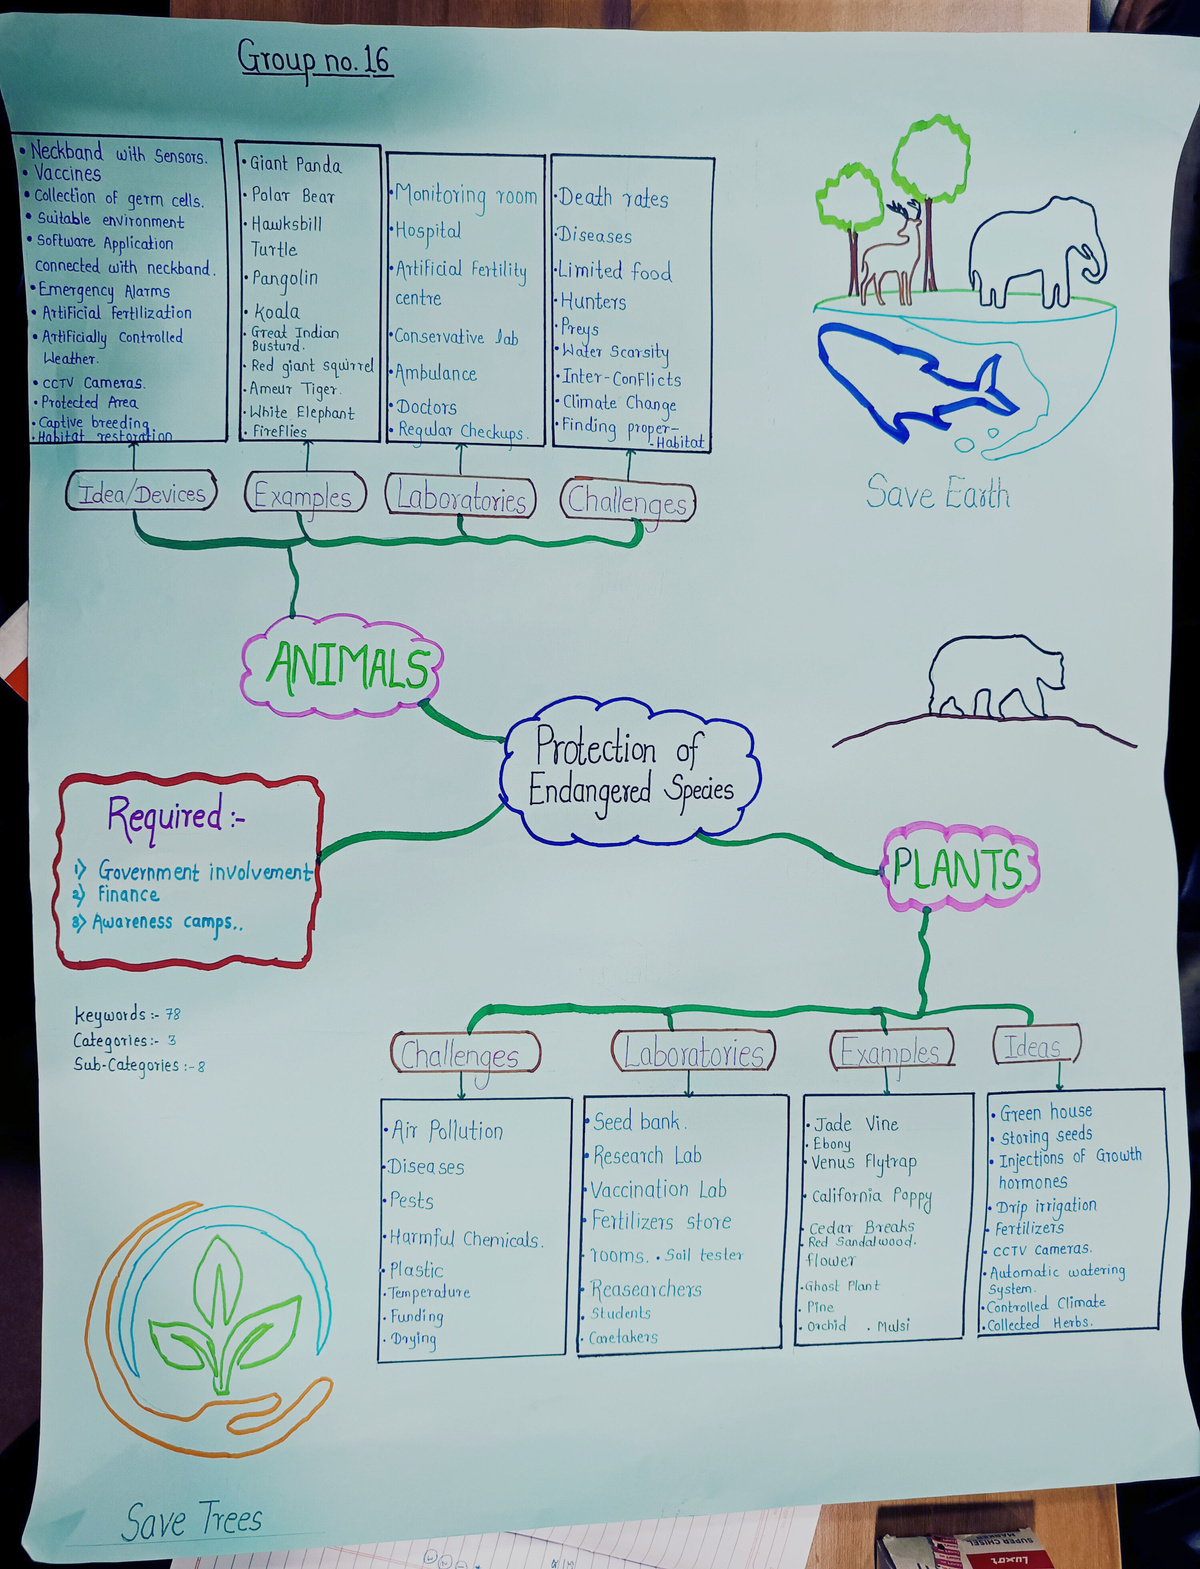 Group no. 16
• Neckband with Sensors.
• Vaccines
• Collection of germ cells.
• Suitable environment
• Software Application
connected with neckband.
• Emergency Alarms
• Artificial Fertilization
• Artificially Controlled
Weather.
• CCTV Cameras.
• Protected Area
• Captive breeding
• Habitat restoration
Idea/Devices
• Giant Panda
• Polar Bear
• Hawksbill
Turtle
• Pangolin
• Koala
• Great Indian
Busturd.
• Red giant squirrel
• Ameur Tiger.
• White Elephant
• Fireflies
Examples
• Monitoring room
• Hospital
• Artificial Fertility
centre
• Conservative lab
• Ambulance
• Doctors
• Regular Checkups.
Laboratories
• Death rates
• Diseases
• Limited food
• Hunters
• Preys
• Water Scarsity
• Inter-Conflicts
• Climate Change
• Finding proper-
-Habitat
Challenges
Save Earth
ANIMALS
Protection of
Endangered Species
Required :-
1) Government involvement
2) Finance
3) Awareness camps..
PLANTS
Keywords :- 78
Categories :- 3
Sub-Categories :- 8
Challenges
• Air Pollution
• Diseases
• Pests
• Harmful Chemicals.
• Plastic
• Temperature
• Funding
• Drying
Laboratories
• Seed bank.
• Research Lab
• Vaccination Lab
• Fertilizers store
rooms. • Soil tester
• Reasearchers
• Students
• Caretakers
Examples
• Jade Vine
• Ebony
• Venus Flytrap
• California Poppy
• Cedar Breaks
• Red Sandalwood.
flower
• Ghost Plant
• Pine
• Orchid • Mulsi
Ideas
• Green house
• Storing seeds
• Injections of Growth
hormones
• Drip irrigation
• Fertilizers
• CCTV Cameras.
• Automatic watering
System.
• Controlled Climate
• Collected Herbs.
Save Trees
SUPER CHISEL
MARKER
Luxor